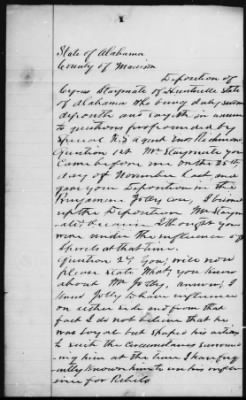 State of Alabama
County of Madison
Deposition of
Cyrus Slaymate of Huntsville State
of Alabama who being duly sworn
deposeth and sayeth in answer
to questions propounded by
Special agent
Question 1st Mr Slaymate you
came before me on the 25th
day of November last and
gave your deposition in the
Benjamin Jolly case, I
up the deposition, Mr
I thought you
were under the influence of
at that time.
Question 2? You, will now
please state what you know
about Mr Jolly, answer, I
have Jolly to have influence
on either side and from that
fact I do not believe that he
was loyal but shaped his action
to suit the circumstances surroun-
ing him at the time I have frequ
ntly known him to use his influ
ence for Rebels